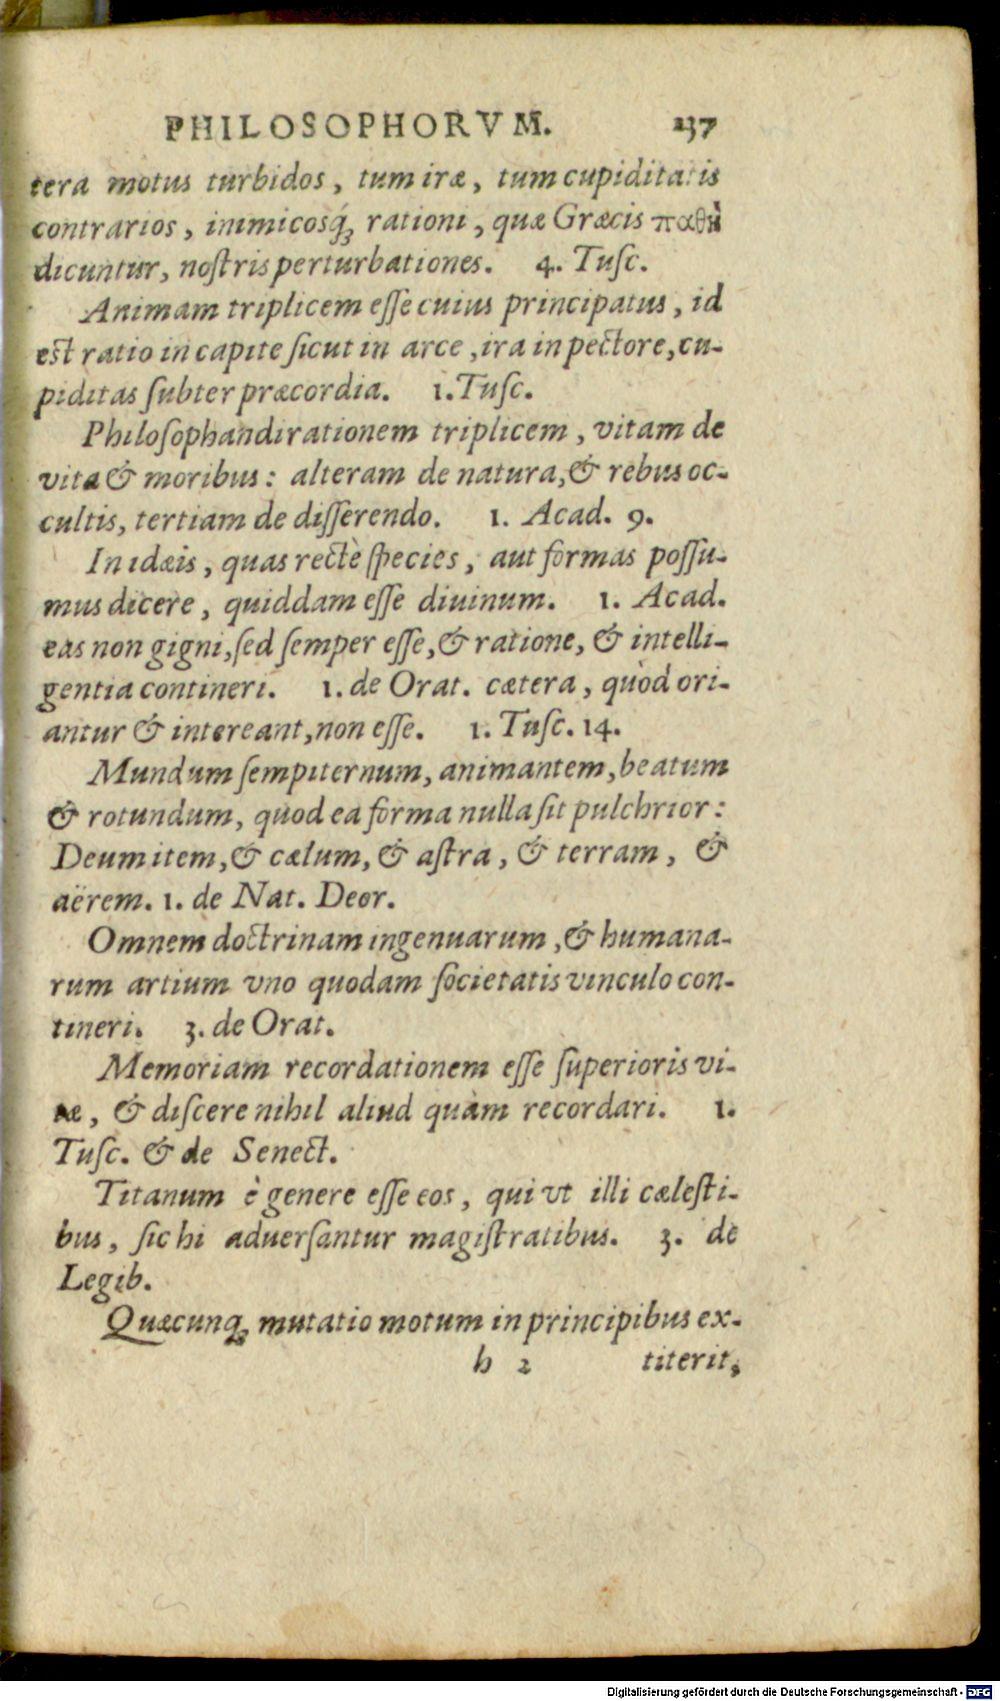 PHILOSOPHORVM. 237
tera motus turbidos, tum iræ, tum cupiditatis
contrarios, inimicosq́ꝫ rationi, quæ Græcis παθὴ
dicuntur, noſtris perturbationes. 4. Tuſc.
Animam triplicem eſſe cuius principatus, id
est ratio in capite ſicut in arce, ira in pectore, cu-
piditas ſubter præcordia. 1. Tuſc.
Philoſophandi rationem triplicem, vitam de
vita & moribus: alteram de natura, & rebus oc-
cultis, tertiam de diſſerendo. 1. Acad. 9.
In idæis, quas rectè ſpecies, aut formas poſſu-
mus dicere, quiddam eſſe diuinum. 1. Acad.
eas non gigni, ſed ſemper eſſe, & ratione, & intelli-
gentia contineri. 1. de Orat. cætera, quòd ori-
antur & intereant, non eſſe. 1. Tuſc. 14.
Mundum ſempiternum, animantem, beatum
& rotundum, quod ea forma nulla ſit pulchrior:
Deum item, & cælum, & aſtra, & terram, &
aërem. 1. de Nat. Deor.
Omnem doctrinam ingenuarum, & humana-
rum artium vno quodam ſocietatis vinculo con-
tineri. 3. de Orat.
Memoriam recordationem eſſe ſuperioris vi-
æ, & diſcere nihil aliud quàm recordari. 1.
Tuſc. & de Senect.
Titanum è genere eſſe eos, qui vt illi cæleſti-
bus, ſic hi aduerſantur magiſtratibus. 3. de
Legib.
Quæcunqꝫ mutatio motum in principibus ex-
h 2 titerit,
Digitalisierung gefördert durch die Deutsche Forschungsgemeinschaft - DFG